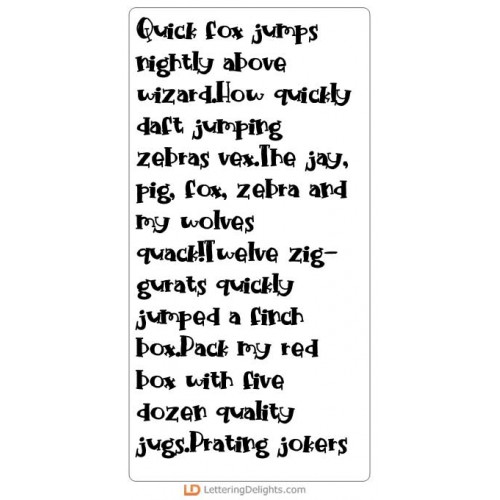 Quick fox jumps
nightly above
wizard.How quickly
daft jumping
zebras vex.The jay,
pig, fox, zebra and
my wolves
quack!Twelve zig-
gurats quickly
jumped a finch
box.Pack my red
box with five
dozen quality
jugs.Prating jokers
LD LetteringDelights.com